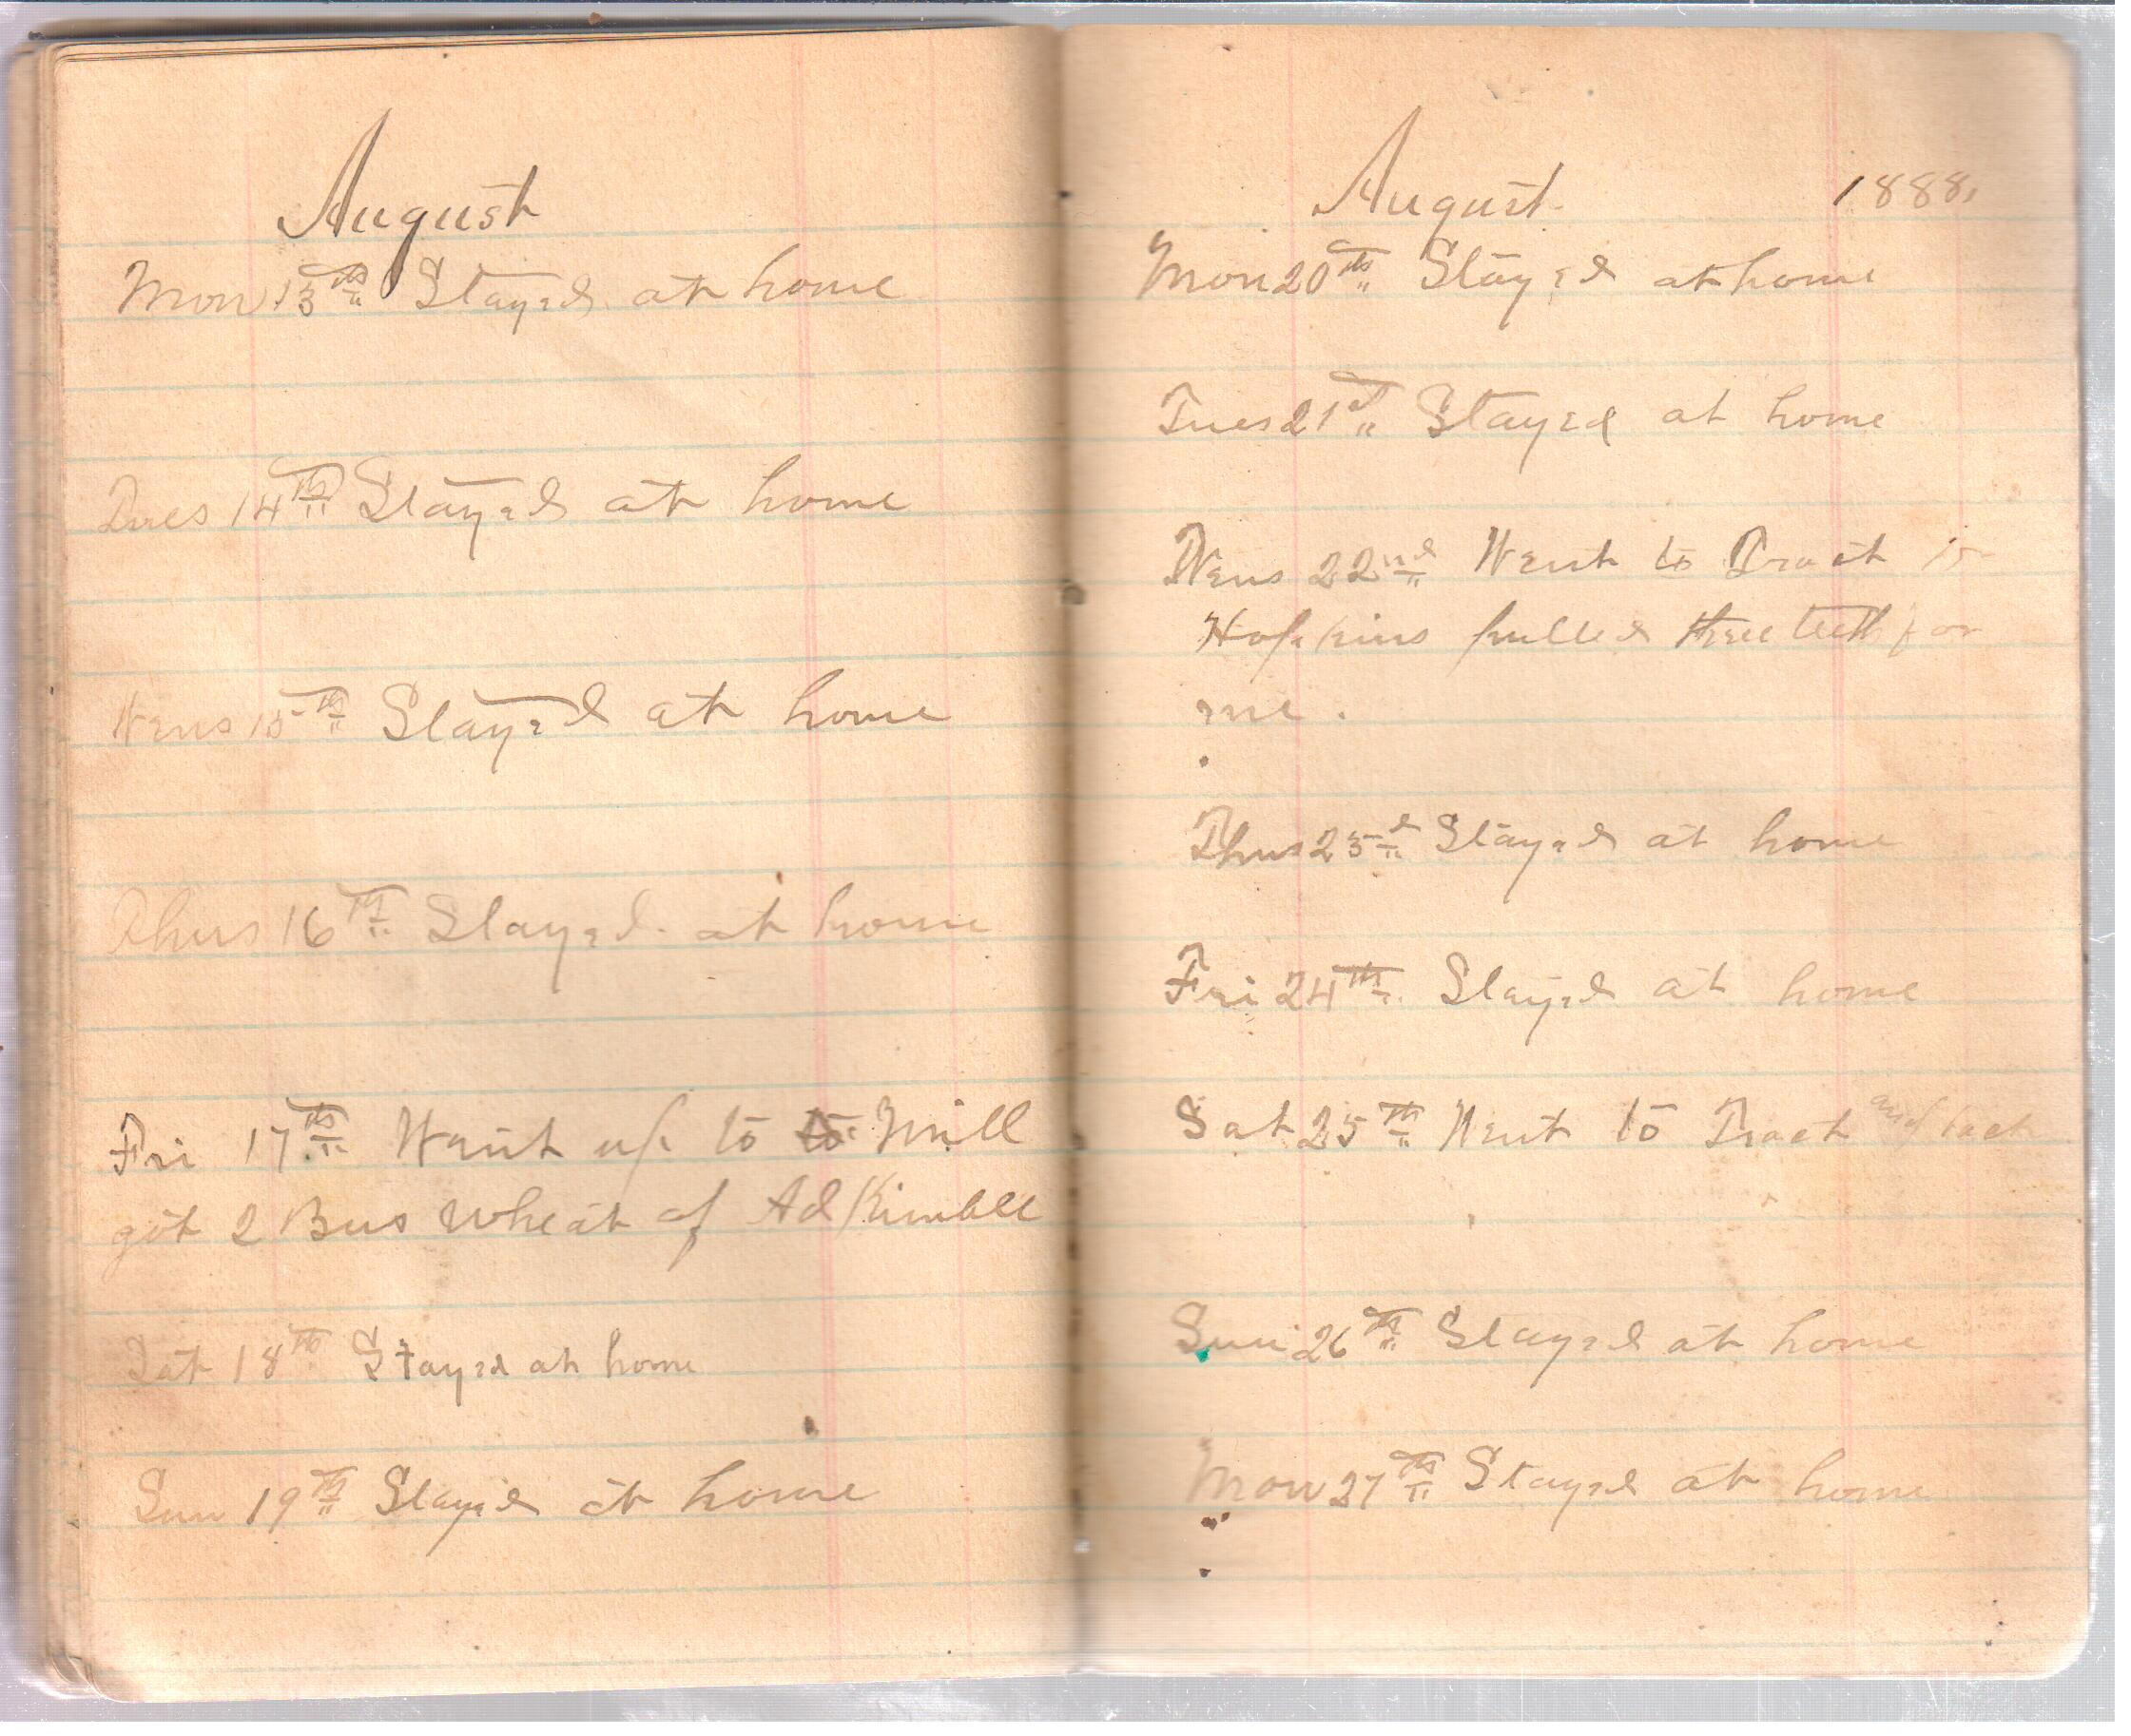 August
Mon 13th Stayed at home
Tues 14th Stayed at home
Wens 15th Stayed at home
Thus 16th Stayed at home
Fri 17th Went up to to Mill
got 2 Bus Wheat of Ad Kimble
Sat 18th Stayed at home
Sun 19th Stayed at home
August 1888,
Mon 20th Stayed at home
Tues 21st Stayed at home
Wens 22nd Went to Tract
Hopkins pulled three teeth for
me.
Thus 23d Stayed at home
Fri 24th Stayed at home
Sat 25th Went to Tract and back
Sun 26th Stayed at home
Mon 27th Stayed at home